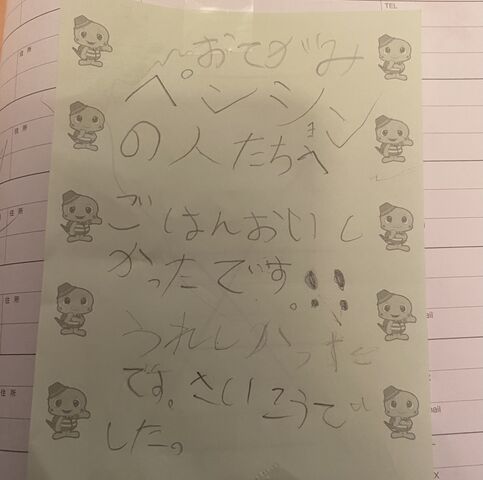 おてがみ
ペンション
の人たちへ
ま
ごはんおいし
かったです!!
うれしかった
です。さいこうで
した。
TEL
住所
住所
住所
住所
住所